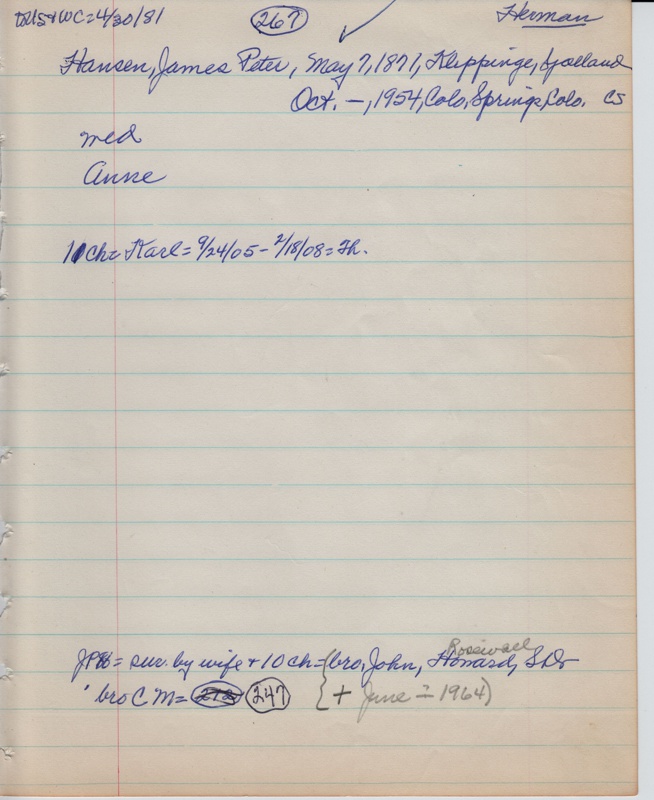 WC=4/30/81 267 Herman
Hansen, James Peter, May 7, 1871, Kleppinge, Sjælland
Oct. —, 1954, Colo. Springs, Colo. CS
med
Anne
10 ch = Karl = 9/24/05 - 2/18/08 = Th.
Rosiwall
JPH = sur. by wife + 10 ch = (bro, John, Howard, S.D.
bro C M = 272 247 + June = 1964)